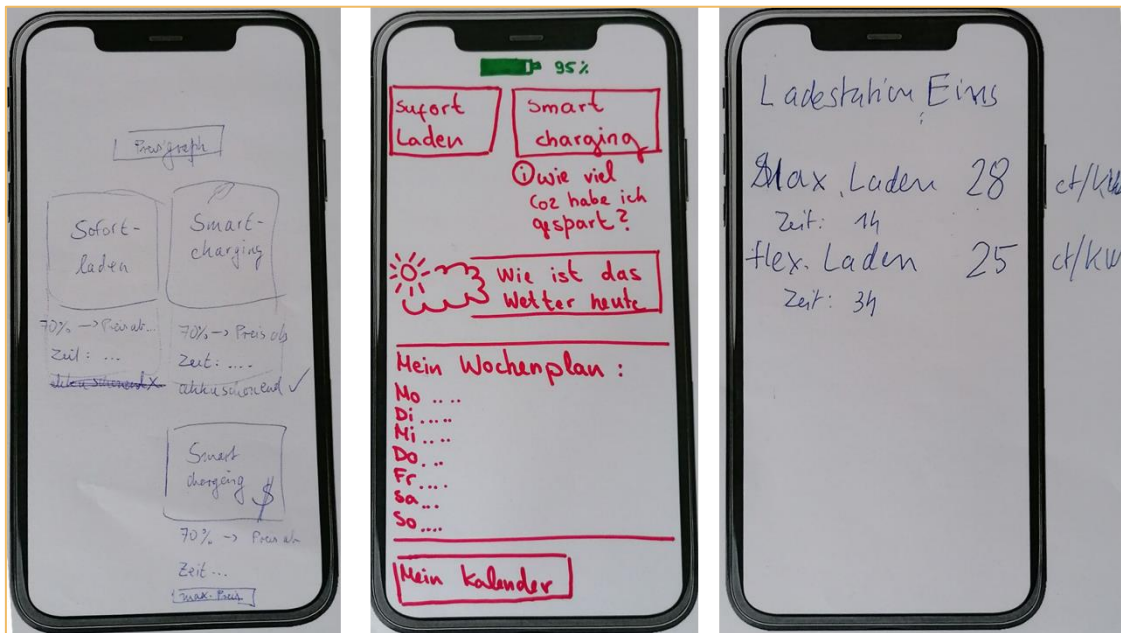 Preisgraph
Sofort-
laden
70% -> Preis ab...
Zeit: ...
akkuschonend x
Smart-
charging
70% -> Preis ab
Zeit: ....
akkuschonend ✓
Smart
charging $
70% -> Preis ab
Zeit ...
max. Preis
95%
Sufort
Laden
Smart
charging
i Wie viel
Co2 habe ich
gespart?
Wie ist das
Wetter heute
Mein Wochenplan :
Mo ....
Di .....
Mi ....
Do ....
Fr ....
Sa ...
So ....
Mein Kalender
Ladestation Eins
Max. Laden 28 ct/kW
Zeit: 1h
flex. Laden 25 ct/kW
Zeit: 3h